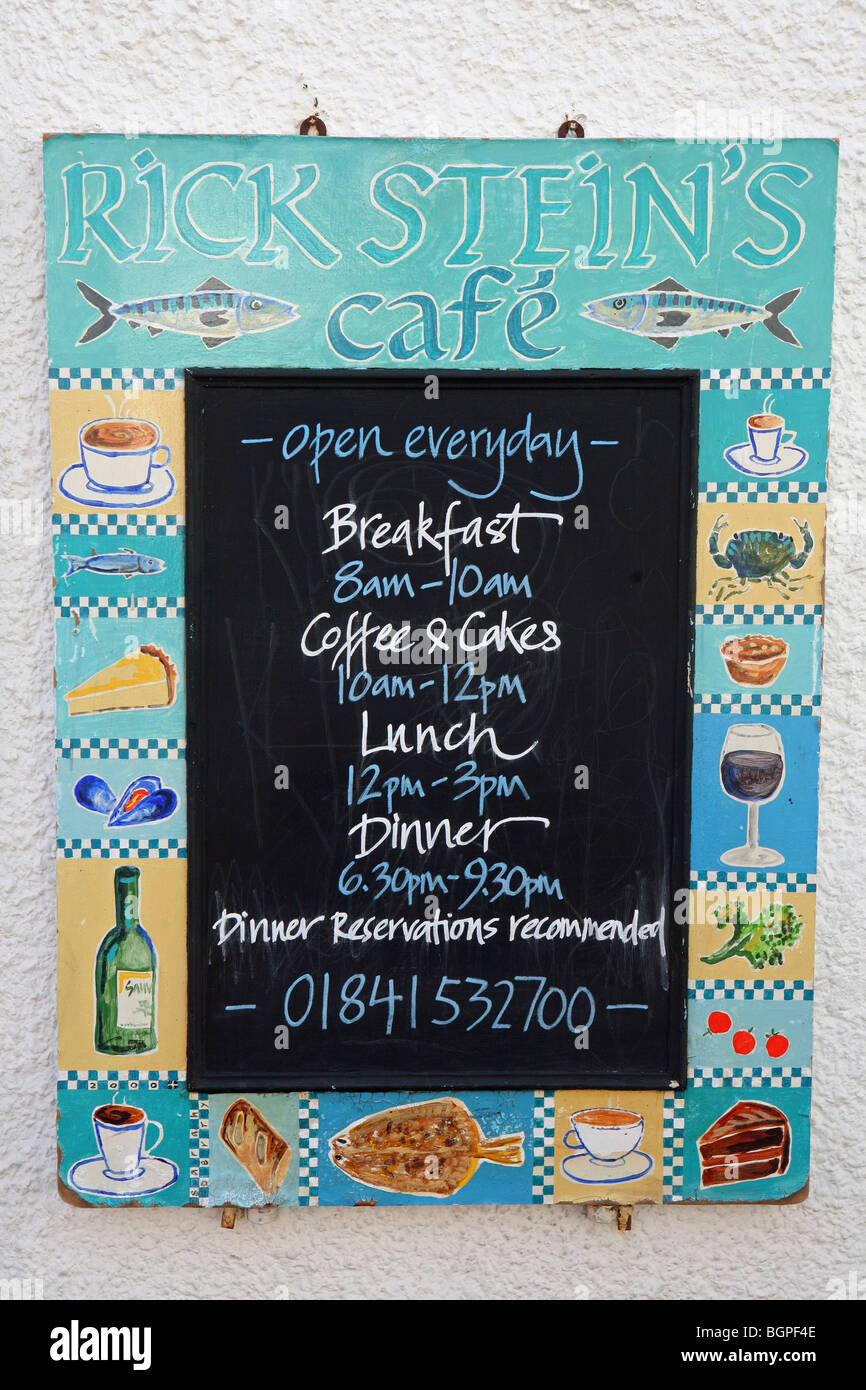 RICK STEIN'S
café
– open everyday –
Breakfast
8am – 10am
Coffee & Cakes
10am – 12pm
Lunch
12pm – 3pm
Dinner
6.30pm – 9.30pm
Dinner Reservations recommended
– 01841 532700 –
2000
alamy
Image ID: BGPF4E
www.alamy.com